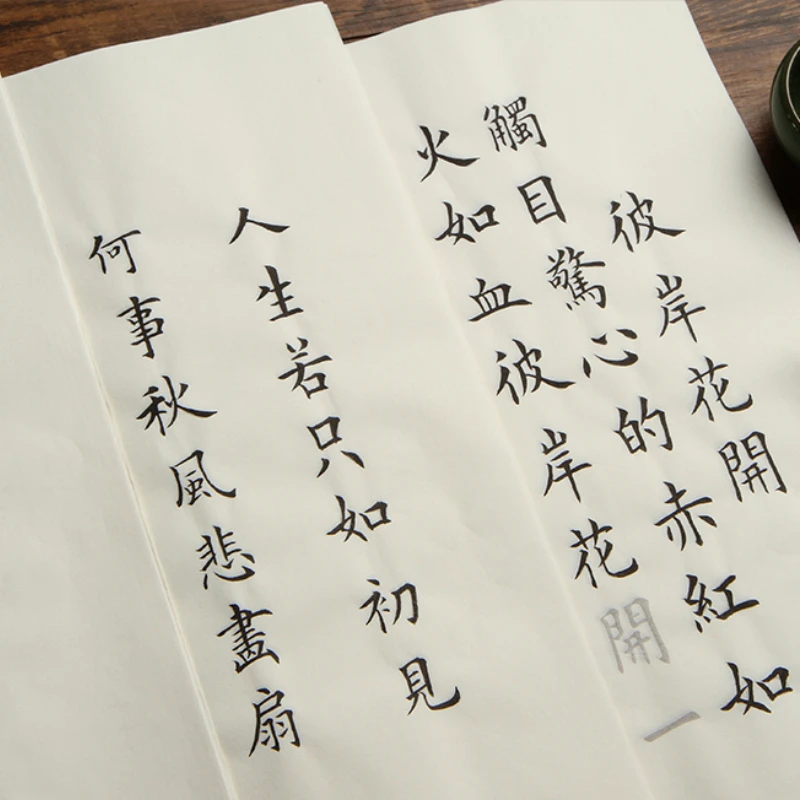 彼岸花開
觸目驚心的赤紅如
火如血彼岸花開一
人生若只如初見
何事秋風悲畫扇